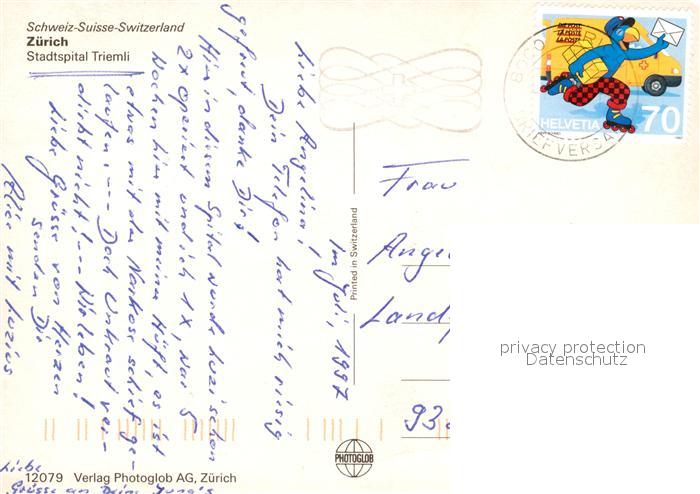 Schweiz-Suisse-Switzerland
Zürich
Stadtspital Triemli
Liebe Angelina! Im Juli, 1997
Dein Telefon hat mich riesig
gefreut, danke Dir!
Hier in diesem Spital wurde Luzi schon
2x operiert und ich 1x, Nai 5
Wochen hier mit meiner Hüft, es ist
etwas mit der Narkose schief ge-
laufen --- Doch Unkraut ver-
dirbt nicht! -- Wir leben!
Liebe Grüsse von Herzen
senden Dir
Alice mit Luzius
Liebe
Grüsse an Deine Jung's
12079 Verlag Photoglob AG, Zürich
Printed in Switzerland
PHOTOGLOB
DIE POST
LA POSTE
LA POSTA
HELVETIA 70
BRIEFVERSAND
Frau
Ange
Land
93
privacy protection
Datenschutz